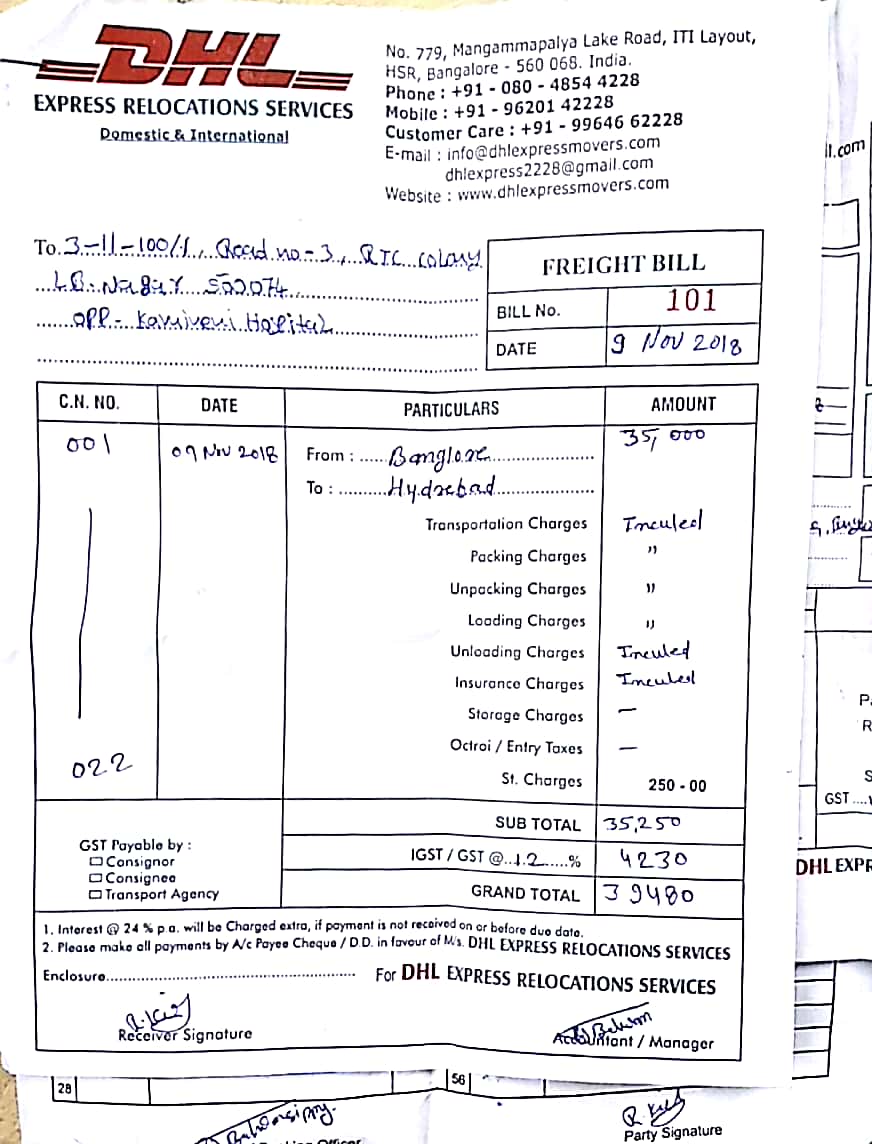 DHL
EXPRESS RELOCATIONS SERVICES
Domestic & International
No. 779, Mangammapalya Lake Road, ITI Layout,
HSR, Bangalore - 560 068. India.
Phone : +91 - 080 - 4854 4228
Mobile : +91 - 96201 42228
Customer Care : +91 - 99646 62228
E-mail : info@dhlexpressmovers.com
dhlexpress2228@gmail.com
Website : www.dhlexpressmovers.com
To. 3-11-100/1, Road no-3, RTC colony
LB. Nagar 522074
opp- Kamineni Hospital
FREIGHT BILL
BILL No. 101
DATE 9 Nov 2018
C.N. NO. DATE PARTICULARS AMOUNT
001 09 Nov 2018 From : Banglore 35,000
To : Hydrebad
Transportation Charges Inculed
Packing Charges "
Unpacking Charges "
Loading Charges "
Unloading Charges Inculed
Insurance Charges Inculed
Storage Charges —
Octroi / Entry Taxes —
022
St. Charges 250 - 00
SUB TOTAL 35,250
GST Payable by :
Consignor
Consignee
Transport Agency
IGST / GST @ 12 % 4230
GRAND TOTAL 39480
1. Interest @ 24 % p.a. will be Charged extra, if payment is not received on or before due date.
2. Please make all payments by A/c Payee Cheque / D.D. in favour of M/s. DHL EXPRESS RELOCATIONS SERVICES
Enclosure
For DHL EXPRESS RELOCATIONS SERVICES
Receiver Signature
Accountant / Manager
28
56
Party Signature
il.com
GST
DHL EXPR